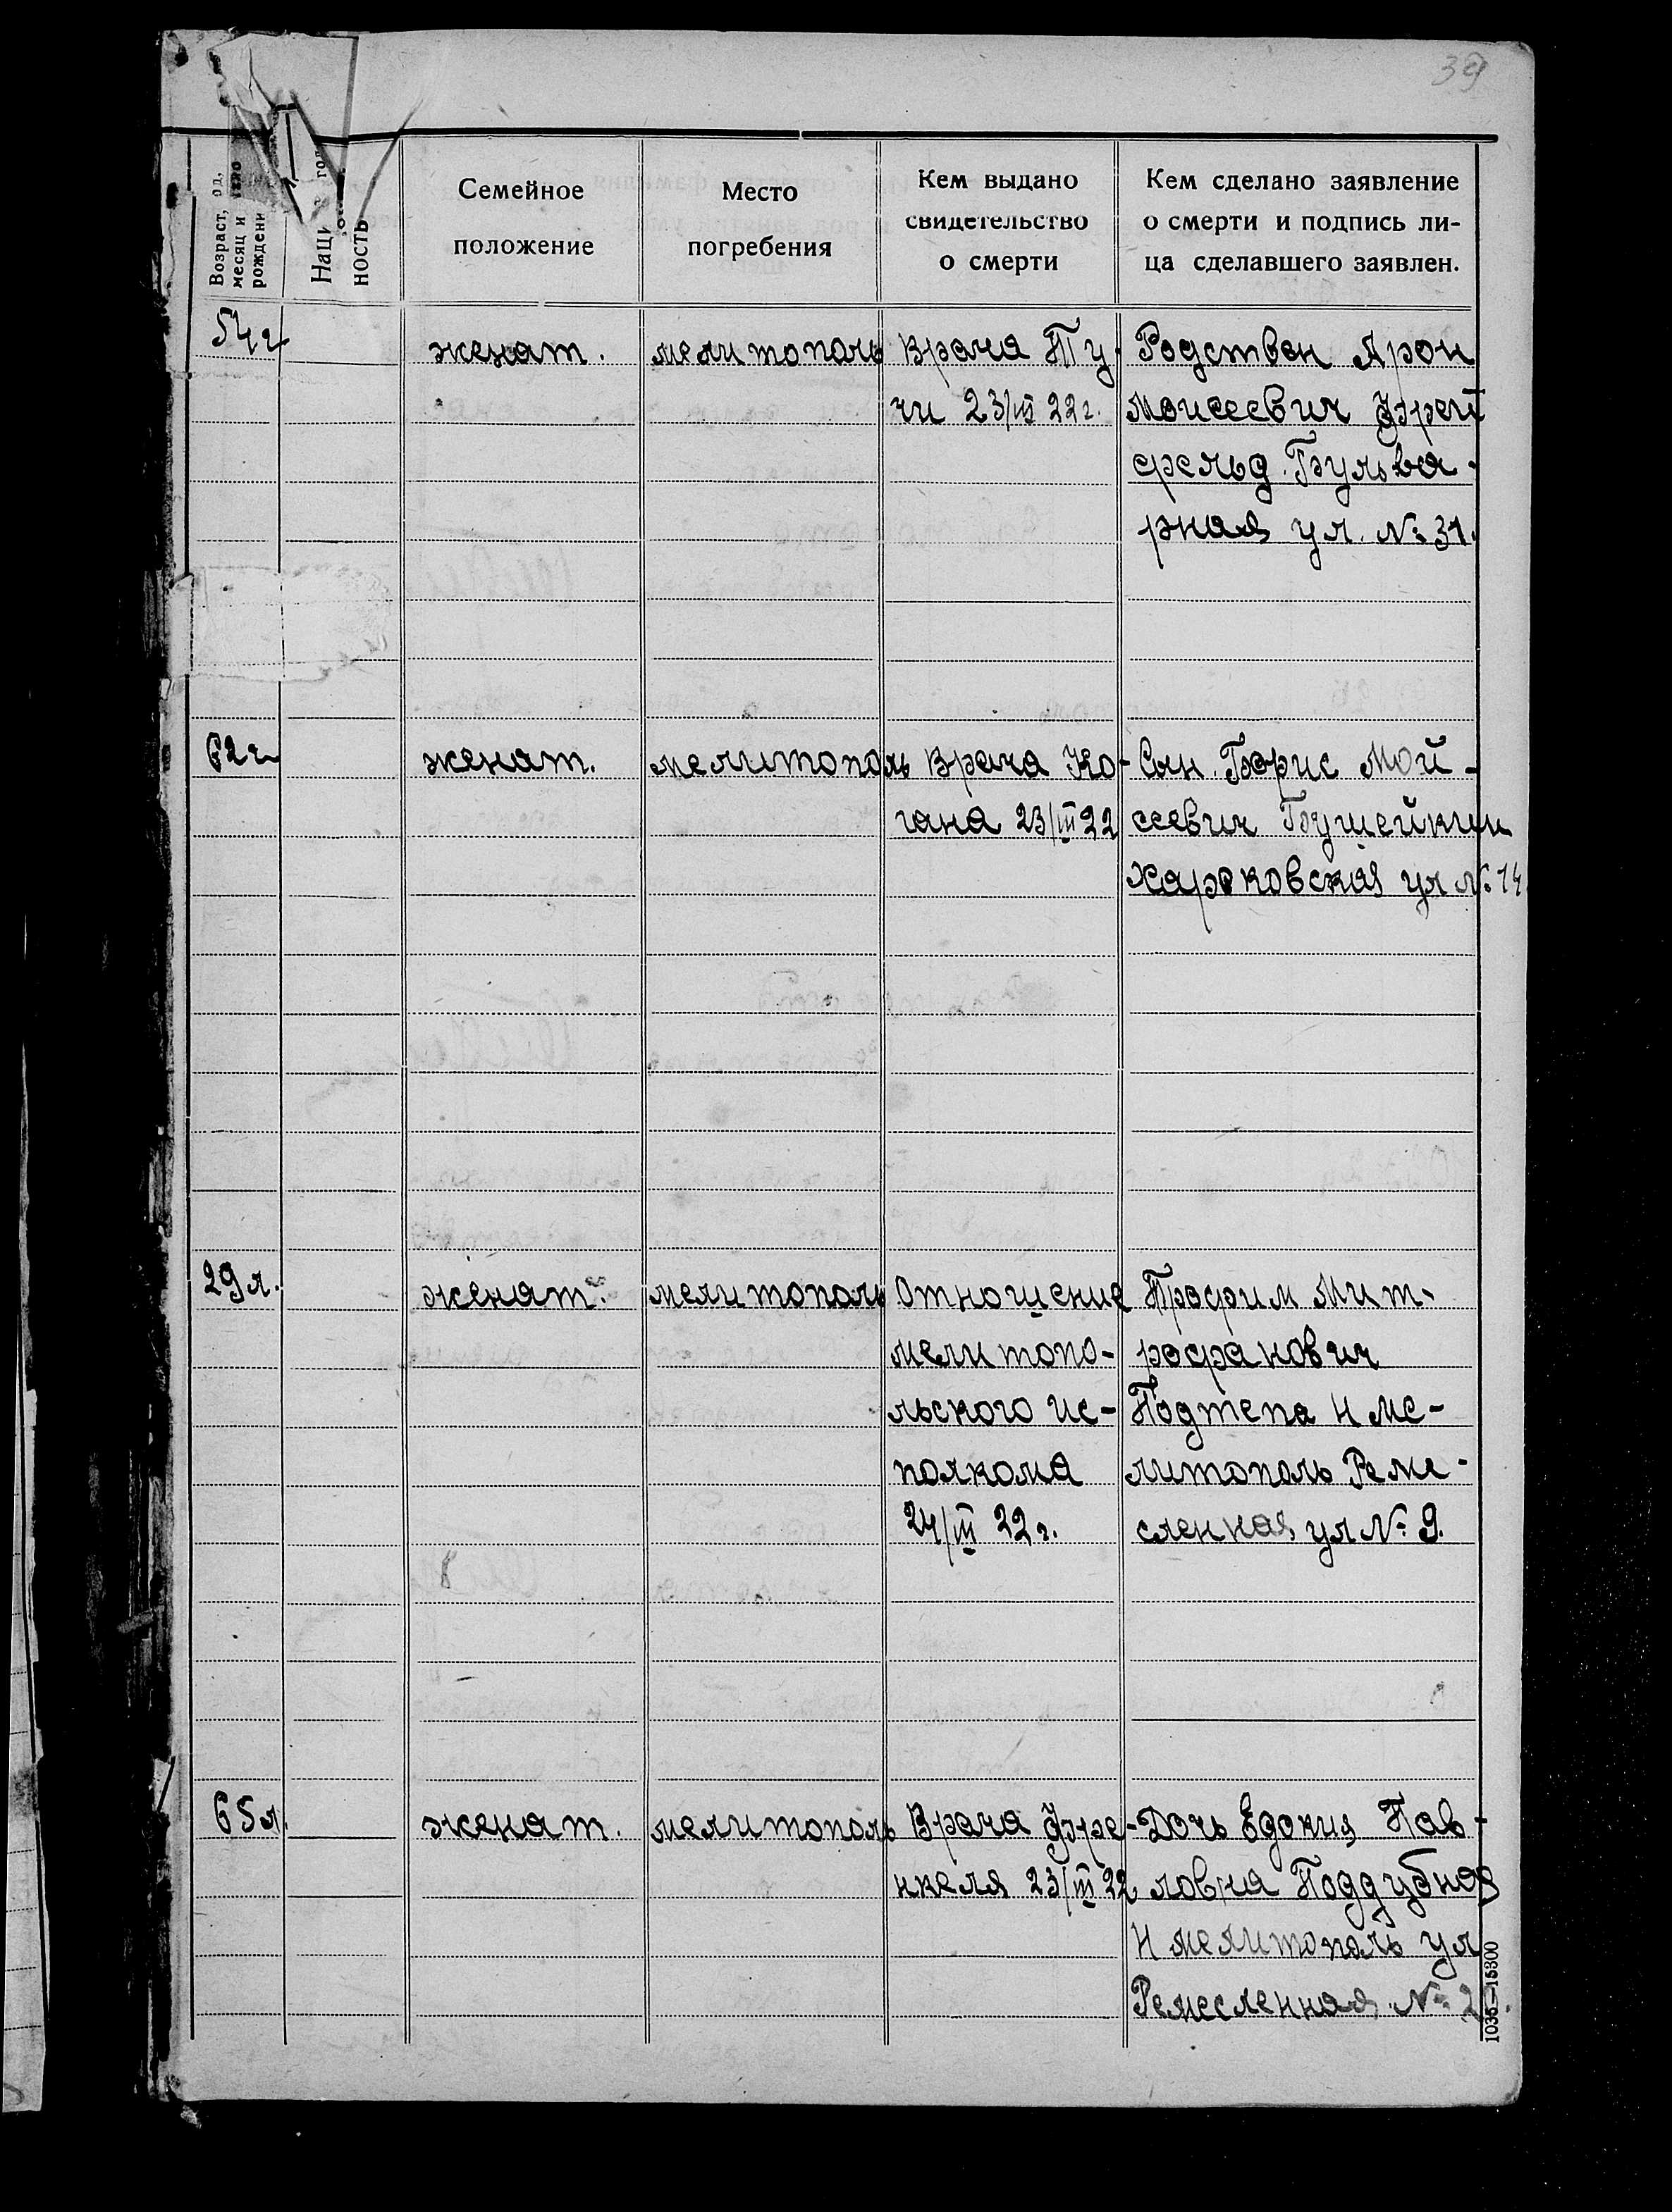 39
Возраст, од,
месяц и
рождени
Наци
ность
Семейное
положение
Место
погребения
Кем выдано
свидетельство
о смерти
Кем сделано заявление
о смерти и подпись ли-
ца сделавшего заявлен.
54 г
женат.
мелитополь
Врача Ту
чи 23/III 22 г.
Родствен Арон
Моисеевич Фрей
фельд. Бульва-
рная ул. №31.
62 г
женат.
мелитополь
Врача Ко-
гана 23/III 22
Сын. Борис Мой-
сеевич Бушейкин
Харьковская ул №14
29 л.
женат.
мелитополь
Отношение
мелитопо-
льского ис-
полкома
24/III 22 г.
Трофим Мит-
рофанович
Поджепа Н Ме-
литополь Реме-
сленная ул №9.
65 л.
женат.
мелитополь
Врача Фре-
нкеля 23/III 22
Дочь Едокия Пав-
ловна Поддубная
Н мелитополь ул
Ремесленная №
1035—15300